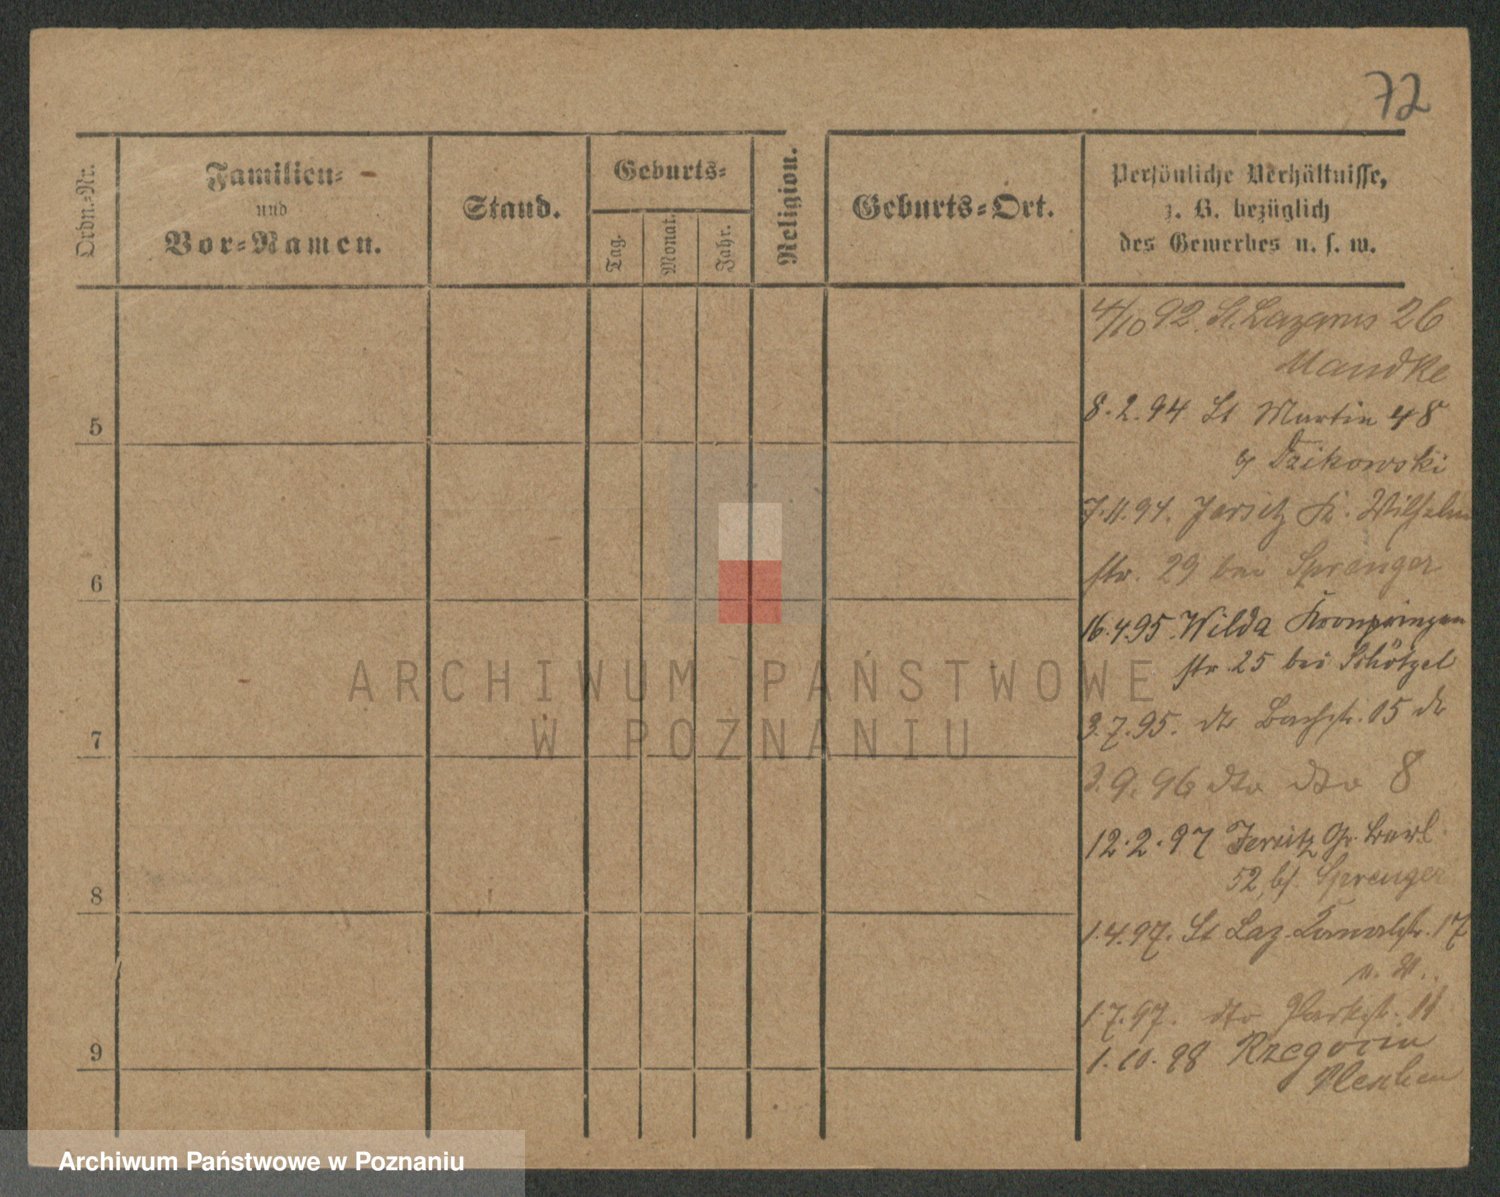 72
Ordn.-Nr.
Familien-
und
Vor-Namen.
Stand.
Geburts-
Tag.
Monat.
Jahr.
Religion.
Geburts-Ort.
Persönliche Verhältnisse,
z. B. bezüglich
des Gewerbes u. s. w.
4/10 92. St. Lazarus 26
Mandke
8.2.94 St Martin 48
Dzikowski
5
7.11.94. Jersitz K. Wilhelm
str. 29 bei Sprenger
6
16.4.95. Wilda Kronprinzen
str. 25 bei Schötzel
3.7.95. dto Bachstr. 15 dto
7
3.9.96 dto dto 8
12.2.97 Jersitz Gr. Berl.
52 bei Sprenger
8
1.4.97. St Laz. Kanalstr. 17
1.7.97. dto Parkstr. 11
1.10.98 Rzegocin
Pleschen
9
ARCHIWUM PAŃSTWOWE
W POZNANIU
Archiwum Państwowe w Poznaniu